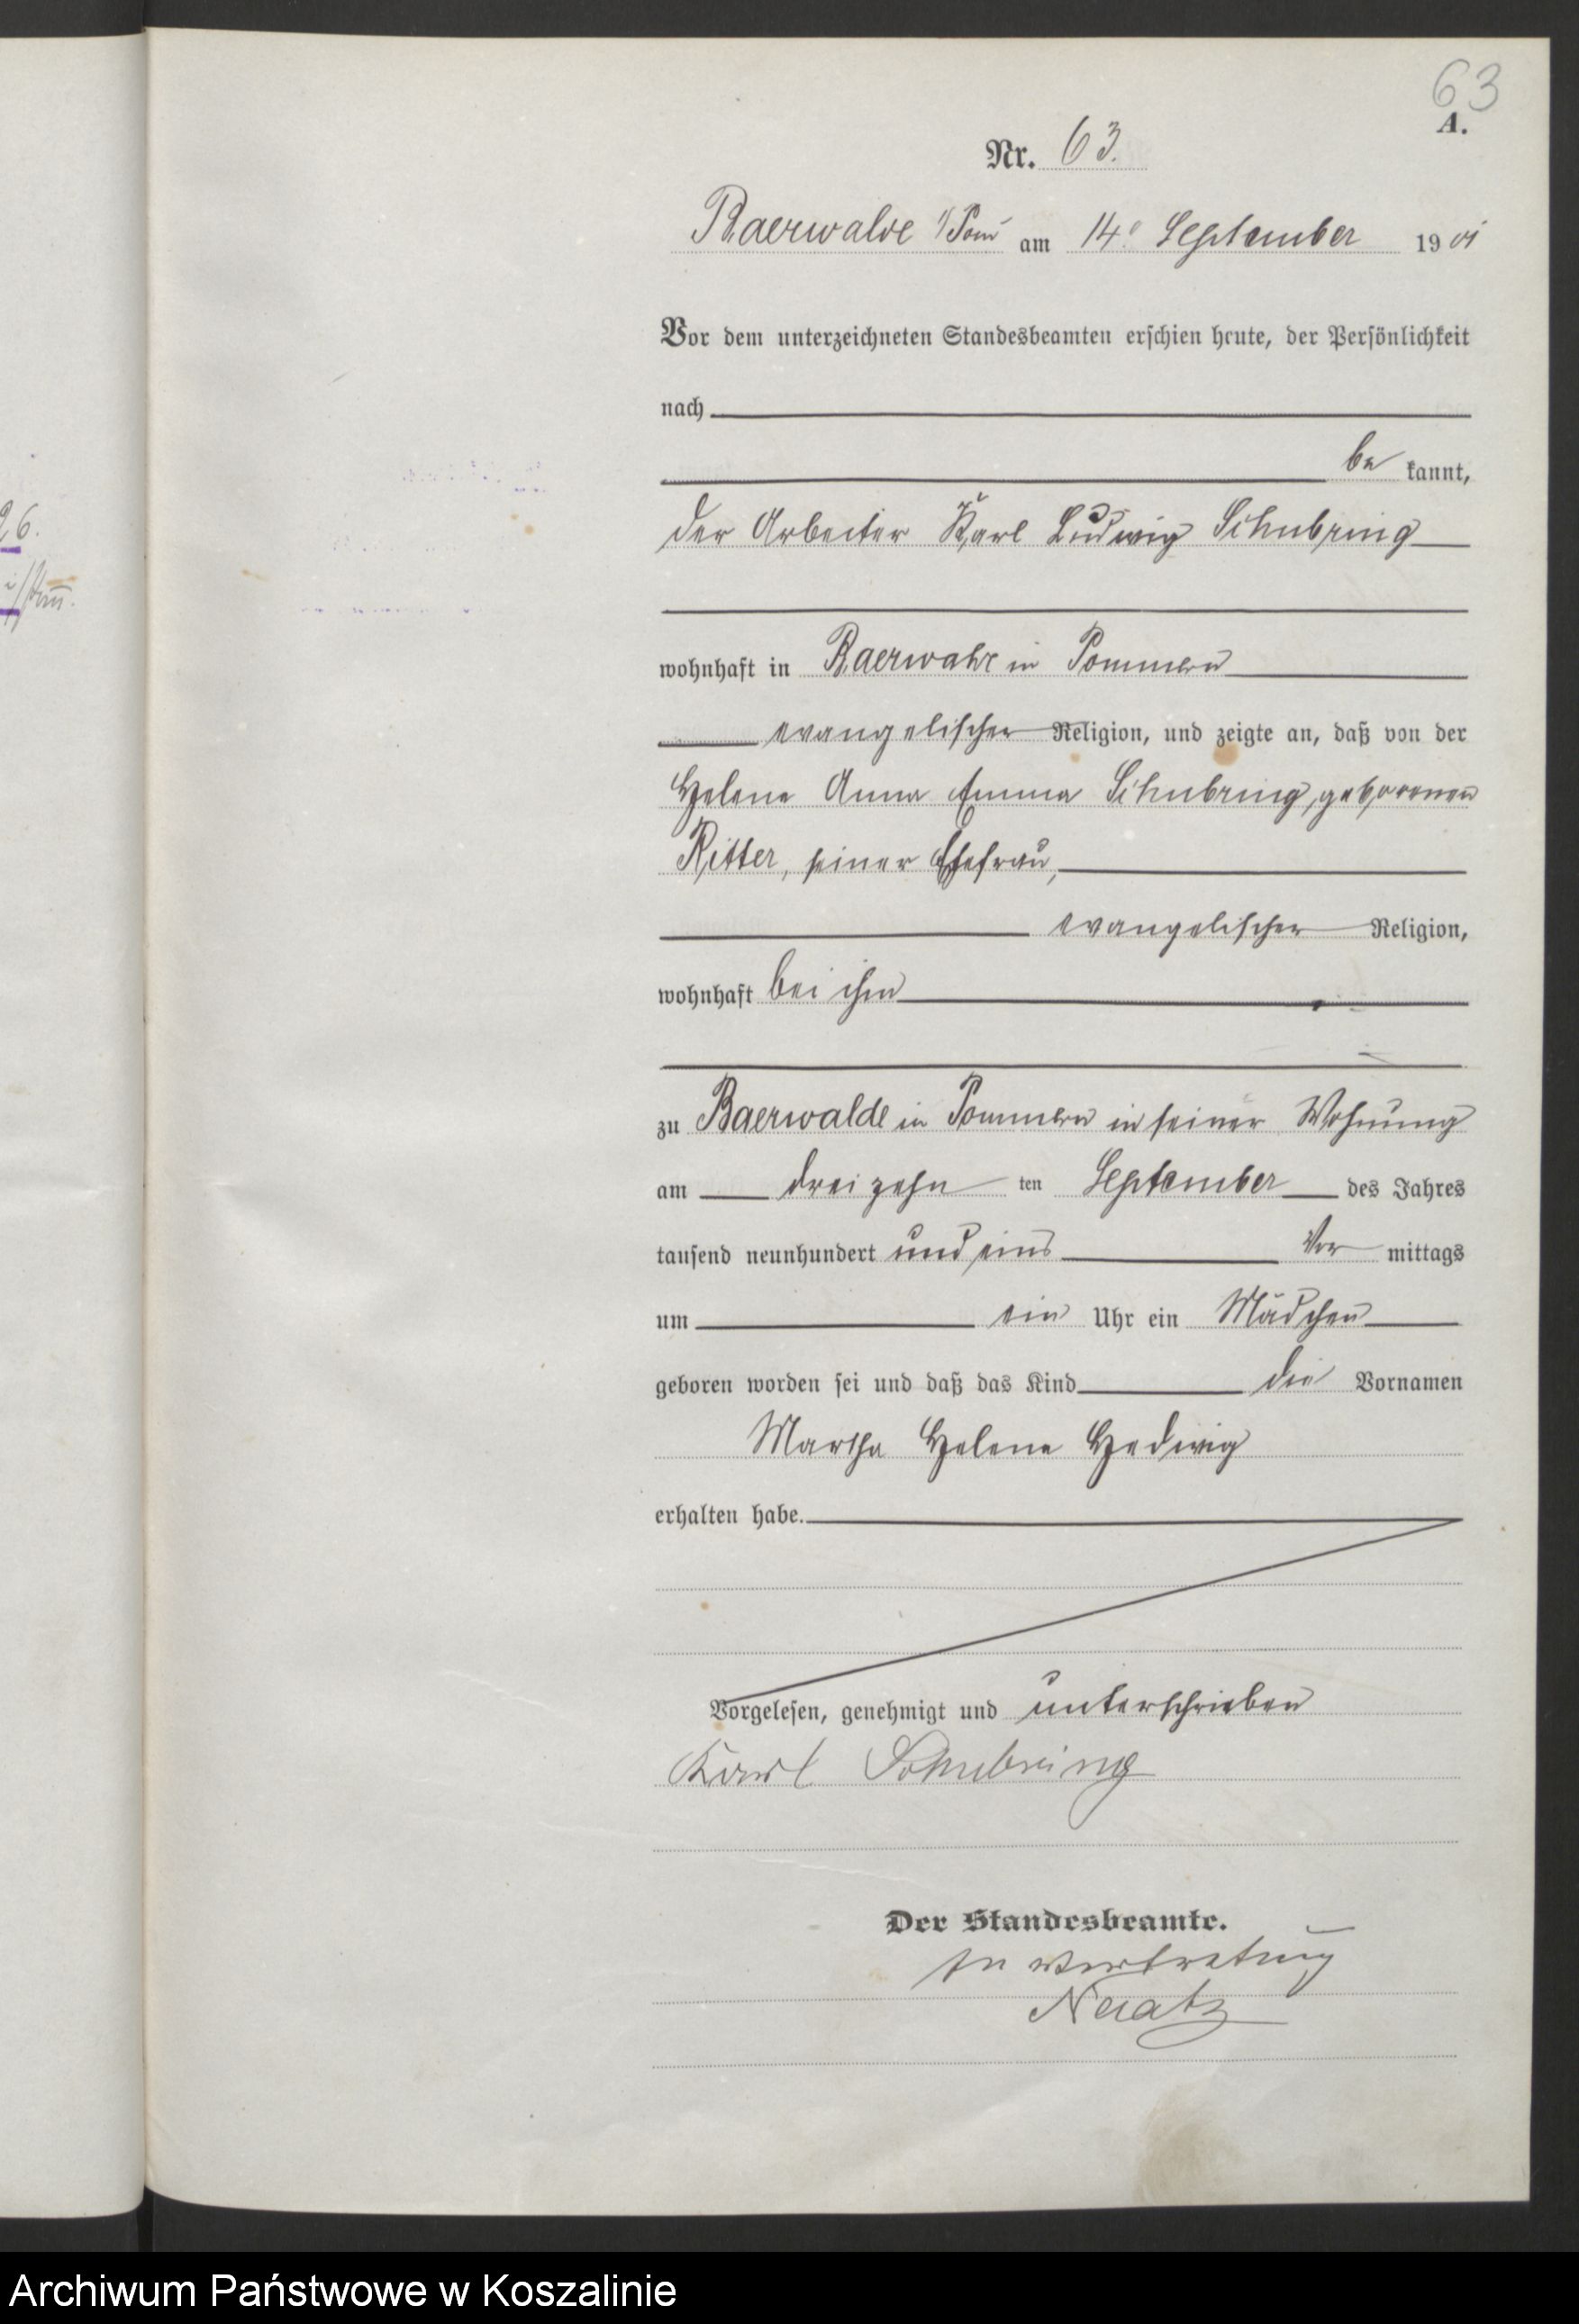 63
A.
Nr. 63.
Baerwalde i/Pom am 14. September 1901
Vor dem unterzeichneten Standesbeamten erschien heute, der Persönlichkeit
nach
be kannt,
der Arbeiter Karl Ludwig Schubring
wohnhaft in Baerwalde in Pommern
evangelischer Religion, und zeigte an, daß von der
Helene Anna Emma Schubring, geborenen
Ritter, seiner Ehefrau,
evangelischer Religion,
wohnhaft bei ihm
zu Baerwalde in Pommern in seiner Wohnung
am dreizehn ten September des Jahres
tausend neunhundert und eins Vor mittags
um ein Uhr ein Mädchen
geboren worden sei und daß das Kind die Vornamen
Martha Helene Hedwig
erhalten habe.
Vorgelesen, genehmigt und unterschrieben
Karl Schubring
Der Standesbeamte.
In Vertretung
Naatz
26.
i/Pom.
Archiwum Państwowe w Koszalinie